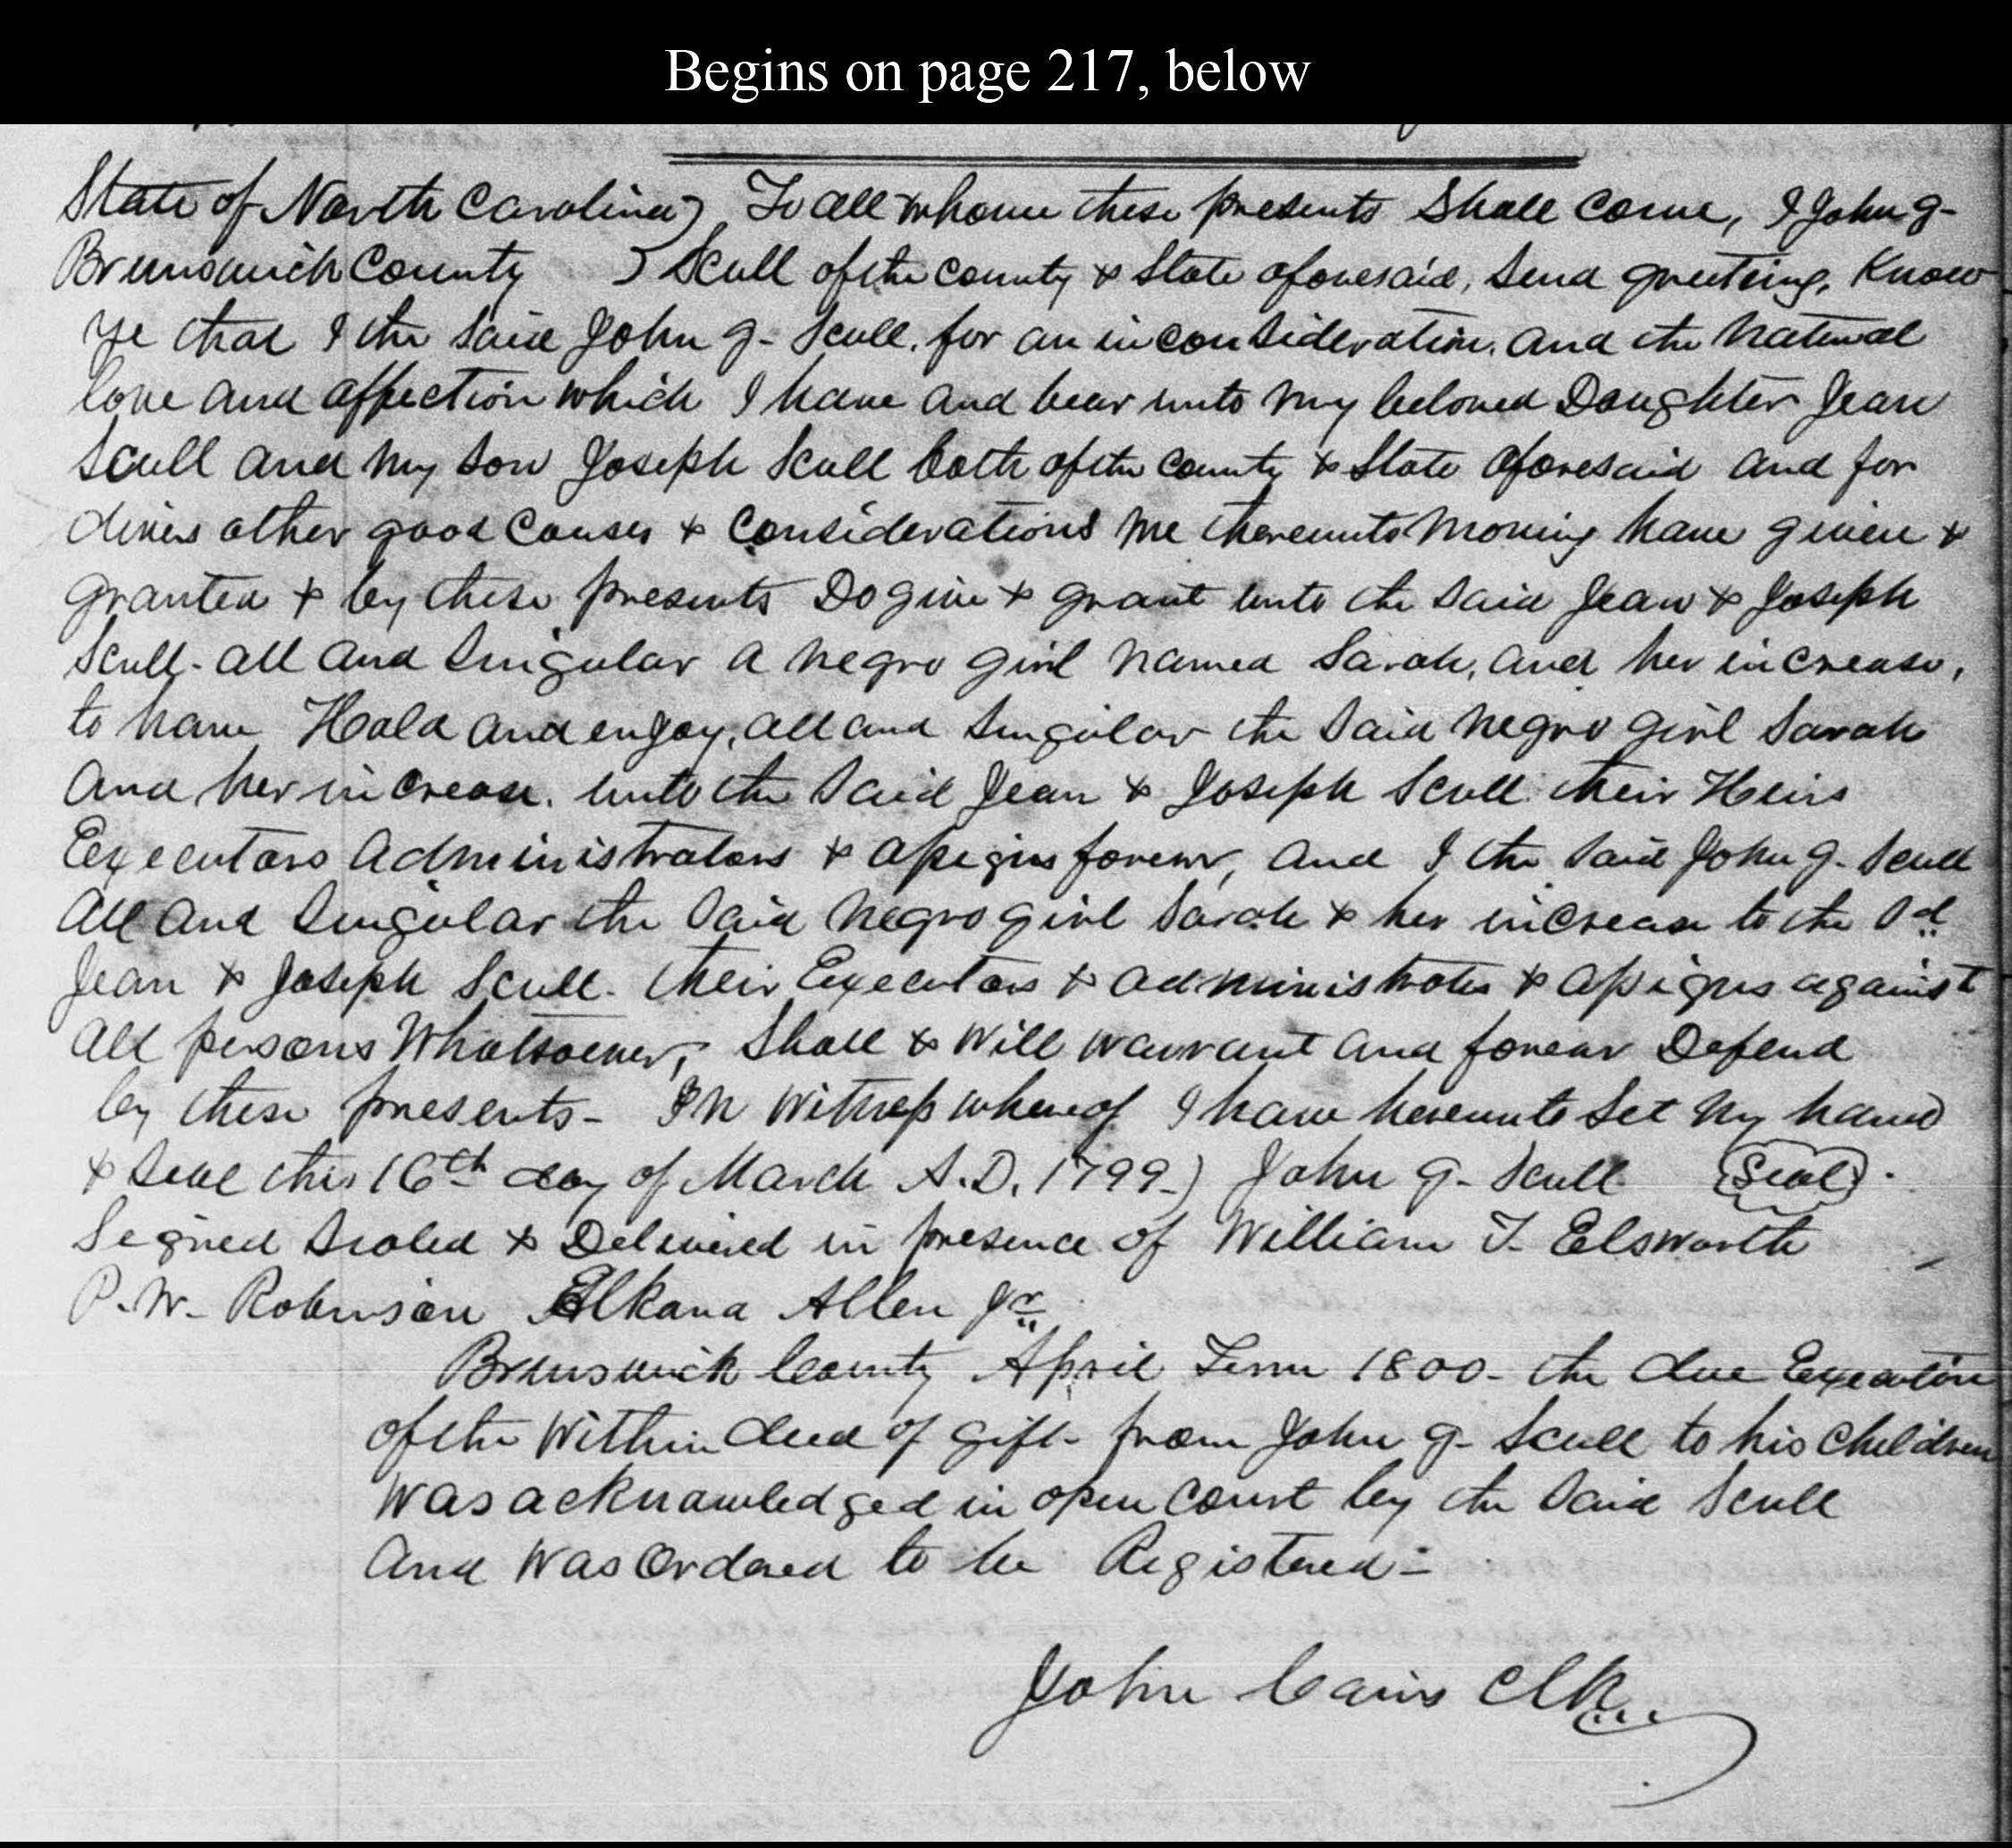 Begins on page 217, below
State of North Carolina) To all whome these presents Shall come, I John G-
Brunswick County ) Scull of the county & State aforesaid, Send greeting, Know
ye that I the Said John G- Scull. for an in consideration. and the natural
love and affection which I have and bear unto my beloved Daughter Jean
Scull and my Son Joseph Scull both of the county & State aforesaid and for
divers other good Causes & Considerations me thereunto moving have given &
granted & by these presents Do give & grant unto the Said Jean & Joseph
Scull- all and Singular a negro girl named Sarah, and her increase,
to have Hold and enjoy, all and Singular the Said negro girl Sarah
And her increase. unto the Said Jean & Joseph Scull their Heirs
Executors Administrators & assigns forever, and I the Said John G- Scull
All and Singular the Said Negro girl Sarah & her increase to the Sd
Jean & Joseph Scull- their Executors & administrators & assigns against
all persons Whatsoever, Shall & Will warrant and forever Defend
by these presents- In Witness whereof I have hereunto Set my hand
& Seal this 16th day of March A.D. 1799-) John G- Scull (Seal)
Signed Sealed & Delivered in presence of William J. Elsworth
P. W- Robinson Elkana Allen Jr
Brunswick County April Term 1800- the due Execution
of the Within deed of gift- from John G- Scull to his Children
Was acknowledged in open Court by the Said Scull
And Was Ordered to be Registered-
John Cains Clk